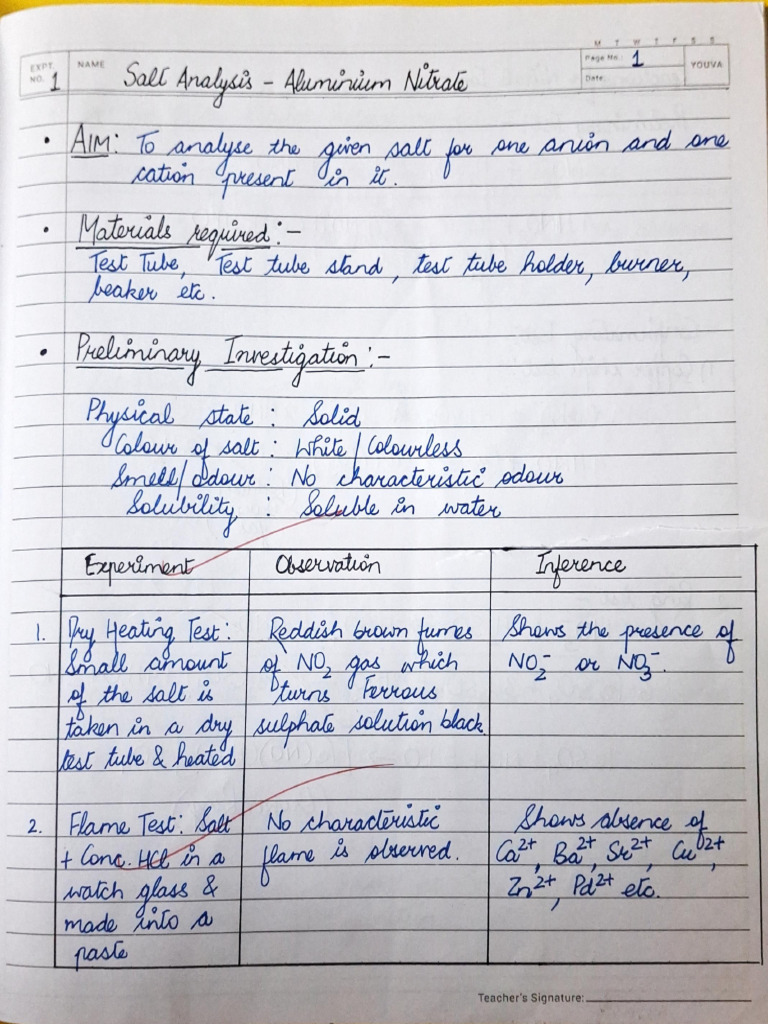 M T W T F S S
EXPT. NO. 1 NAME Salt Analysis - Aluminium Nitrate Page No.: 1 YOUVA
Date:
• AIM: To analyse the given salt for one anion and one
cation present in it.
• Materials required:-
Test Tube, Test tube stand, test tube holder, burner,
beaker etc.
• Preliminary Investigation:-
Physical state : Solid
Colour of salt : White/Colourless
Smell/odour : No characteristic odour
Solubility : Soluble in water
Experiment Observation Inference
1. Dry Heating Test: Reddish brown fumes Shows the presence of
Small amount of NO₂ gas which NO₂⁻ or NO₃⁻.
of the salt is turns Ferrous
taken in a dry sulphate solution black.
test tube & heated
2. Flame Test: Salt No characteristic Shows absence of
+ Conc. HCl in a flame is observed. Ca²⁺, Ba²⁺, Sr²⁺, Cu²⁺,
watch glass & Zn²⁺, Pd²⁺ etc.
made into a
paste
Teacher's Signature: